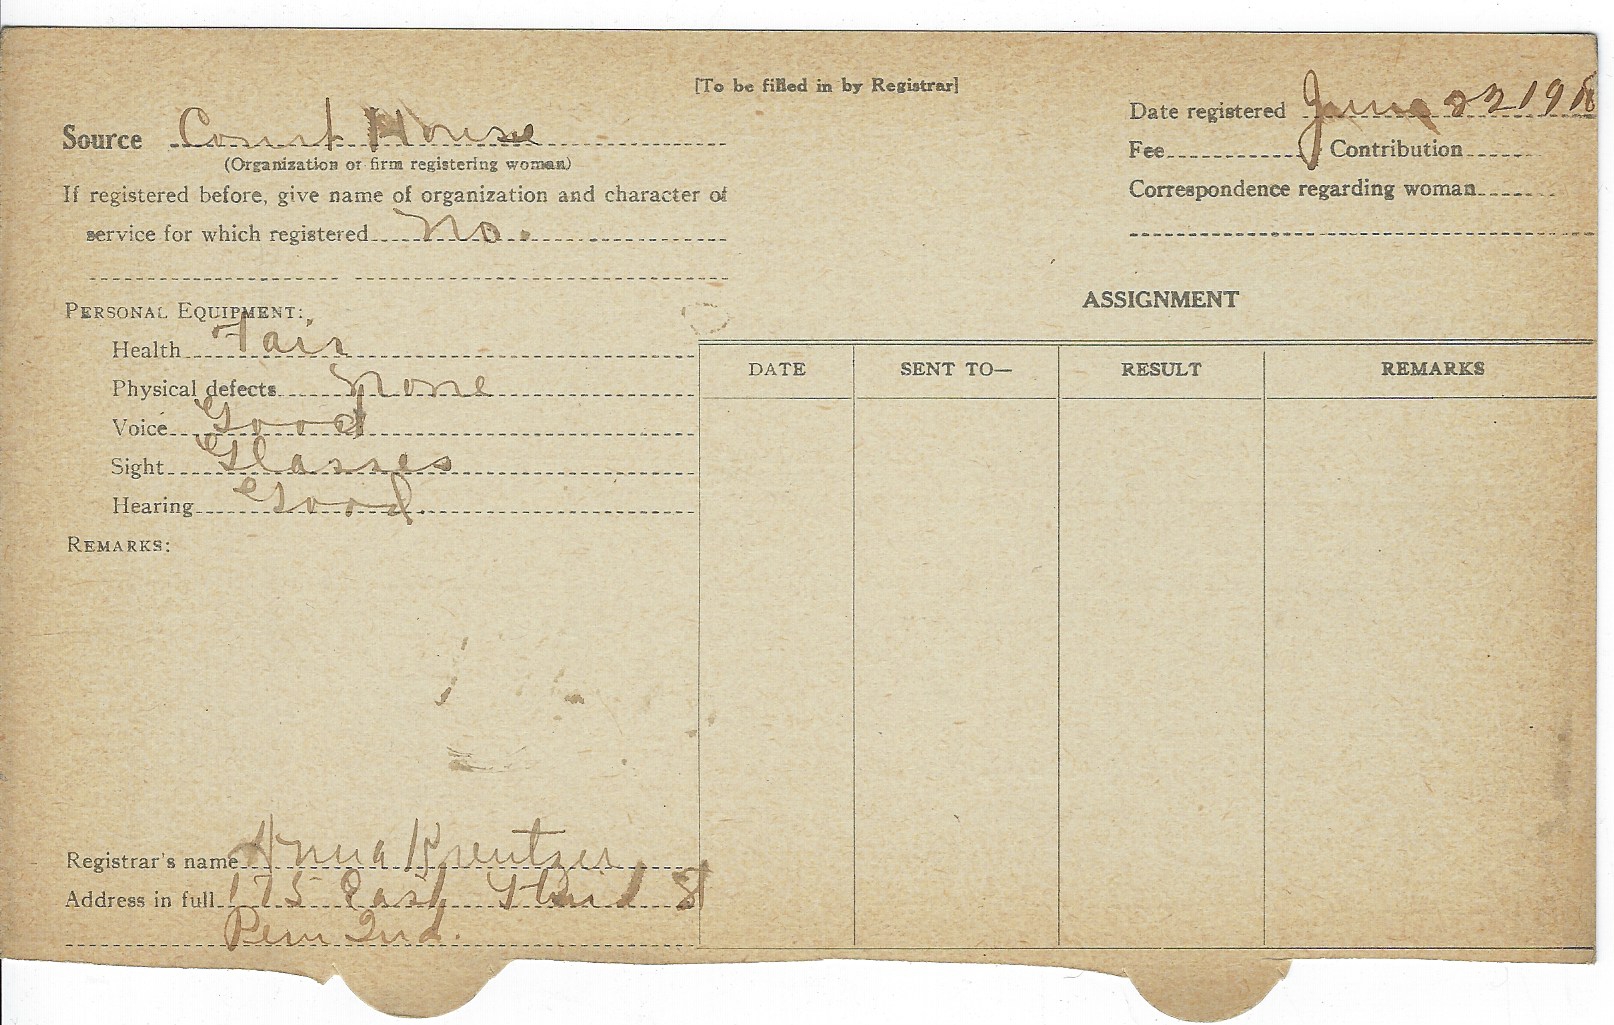 [To be filled in by Registrar]
Source Court House
(Organization or firm registering woman)
If registered before, give name of organization and character of
service for which registered No.
Date registered June 22 1918
Fee Contribution
Correspondence regarding woman
PERSONAL EQUIPMENT:
Health Fair
Physical defects None
Voice Good
Sight Glasses
Hearing Good.
REMARKS:
ASSIGNMENT
DATE SENT TO— RESULT REMARKS
Registrar's name Anna Kreutzer
Address in full 175 East Third St
Peru Ind.